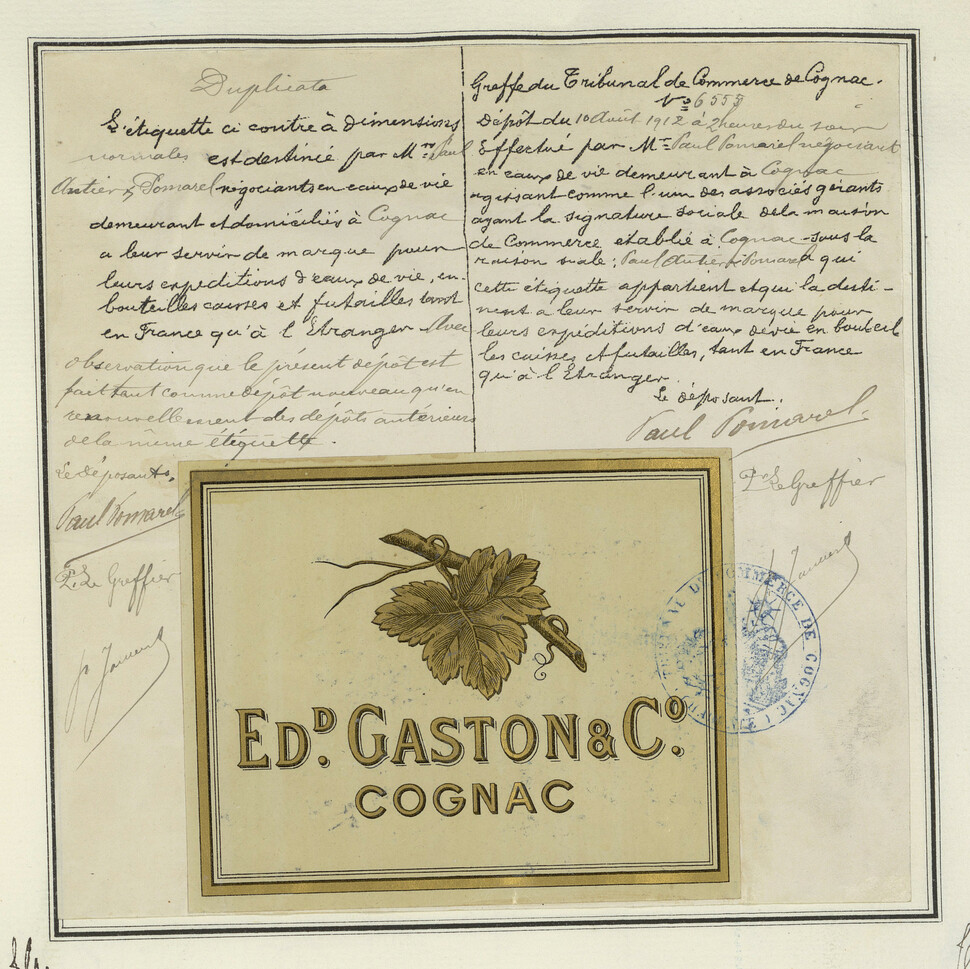 Duplicata
L'étiquette ci contre à dimensions
normales est destinée par Mrs Paul
Antier & Pomarel négociants en eaux de vie
demeurant et domiciliés à Cognac
a leur servir de marque pour
leurs expéditions d'eaux de vie, en
bouteilles caisses et futailles tant
en France qu'à l'Etranger Avec
observation que le présent dépôt est
fait tant comme dépôt nouveau qu'en
renouvellement des dépôts antérieurs
de la même étiquette.
Le déposant,
Paul Pomarel
Pr Le Greffier
Greffe du Tribunal de Commerce de Cognac.
No 6555
Dépôt du 10 Août 1912 à 2 heures du soir
Effectué par Mr Paul Pomarel négociant
en eaux de vie demeurant à Cognac
agissant comme l'un des associés gérants
ayant la signature sociale de la maison
de Commerce établie à Cognac sous la
raison sociale; Paul Antier & Pomarel à qui
cette étiquette appartient et qui la desti-
nent a leur servir de marque pour
leurs expéditions d'eaux de vie en bouteil
les caisses et futailles, tant en France
qu'à l'Etranger.
Le déposant.
Paul Pomarel
Pr Le Greffier
EDD. GASTON & CO.
COGNAC
TRIBUNAL DE COMMERCE DE COGNAC